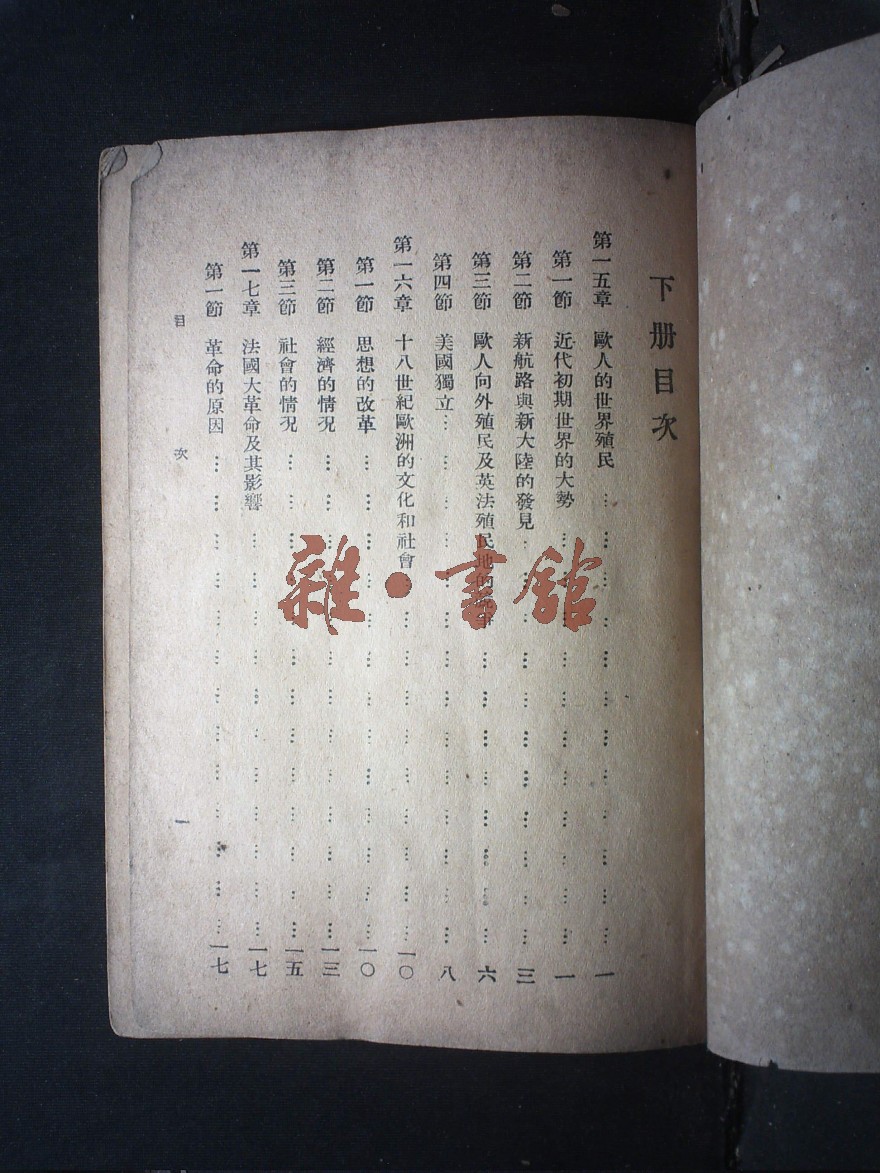 下册目次
第一五章 歐人的世界殖民……一
第一節 近代初期世界的大勢……一
第二節 新航路與新大陸的發見……三
第三節 歐人向外殖民及英法殖民地的……六
第四節 美國獨立……八
第一六章 十八世紀歐洲的文化和社會……一〇
第一節 思想的改革……一〇
第二節 經濟的情況……一三
第三節 社會的情況……一五
第一七章 法國大革命及其影響……一七
第一節 革命的原因……一七
目次 一
雜·書館